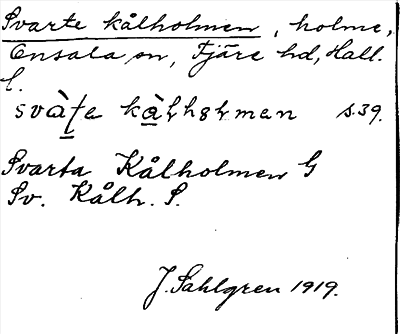 Svarte kålholmen, holme,
Onsala sn, Fjäre hd, Hall.
l.
svàʈe kàɫhoɫmen s. 39.
Svarta Kålholmen G
Sv. Kålh. S.
J. Sahlgren 1919.